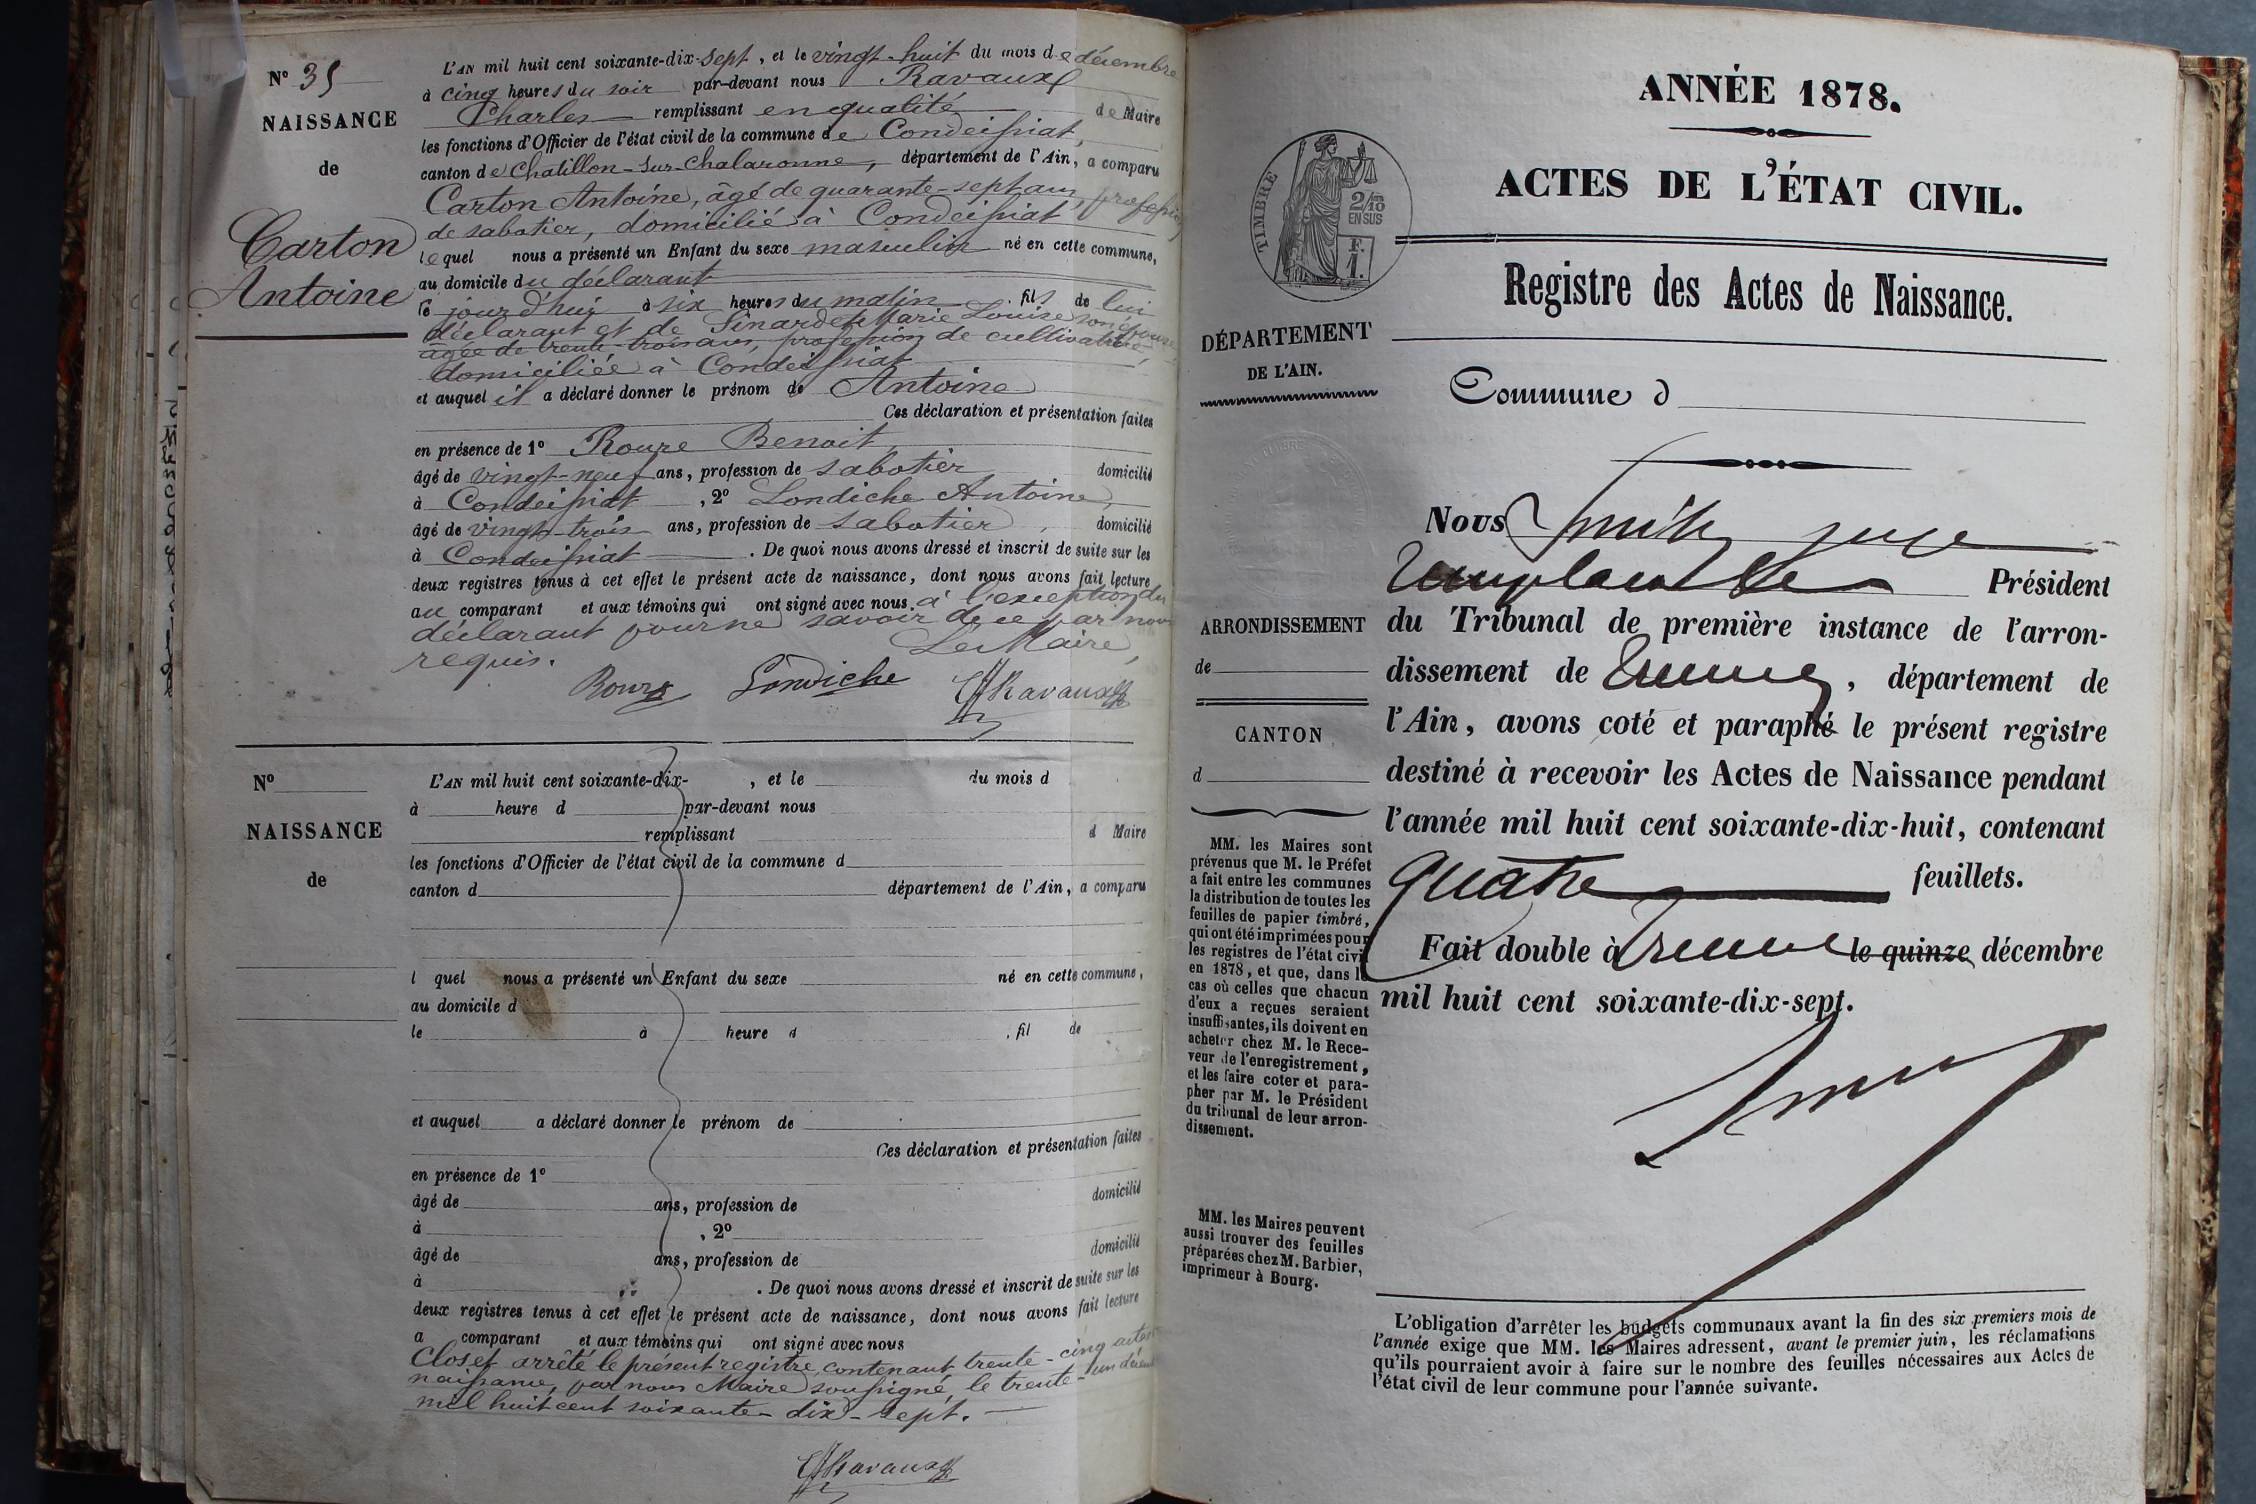 N° 35
NAISSANCE
de
Carton
Antoine
L'AN mil huit cent soixante-dix-sept, et le vingt-huit du mois de décembre
à cinq heures du soir par-devant nous Ravaux
Charles remplissant en qualité de Maire
les fonctions d'Officier de l'état civil de la commune de Condeissiat,
canton de Chatillon-sur-Chalaronne, département de l'Ain, a comparu
Carton Antoine, âgé de quarante-sept ans, profession
de sabotier, domicilié à Condeissiat
lequel nous a présenté un Enfant du sexe masculin né en cette commune,
au domicile du déclarant
le jourd'hui à six heures du matin, fils de lui
déclarant et de Marie Louise son épouse
âgée de trente-trois ans, profession de cultivatrice,
domiciliée à Condeissiat
et auquel il a déclaré donner le prénom de Antoine
Ces déclaration et présentation faites
en présence de 1° Roure Benoit,
âgé de vingt-neuf ans, profession de sabotier domicilié
à Condeissiat, 2° Londiche Antoine,
âgé de vingt-trois ans, profession de sabotier, domicilié
à Condeissiat. De quoi nous avons dressé et inscrit de suite sur les
deux registres tenus à cet effet le présent acte de naissance, dont nous avons fait lecture
au comparant et aux témoins qui ont signé avec nous à l'exception du
déclarant pour ne savoir de ce par nous
requis. Le Maire,
Roure Londiche Ravaux
N°
NAISSANCE
de
L'AN mil huit cent soixante-dix- , et le du mois d
à heure d par-devant nous
remplissant d Maire
les fonctions d'Officier de l'état civil de la commune d
canton d département de l'Ain, a comparu
l quel nous a présenté un Enfant du sexe né en cette commune,
au domicile d
le à heure d , fil de
et auquel a déclaré donner le prénom de
Ces déclaration et présentation faites
en présence de 1°
âgé de ans, profession de domicilié
à , 2°
âgé de ans, profession de domicilié
à . De quoi nous avons dressé et inscrit de suite sur les
deux registres tenus à cet effet le présent acte de naissance, dont nous avons fait lecture
a comparant et aux témoins qui ont signé avec nous
Clos et arrêté le présent registre, contenant trente-cinq actes
naissance, par nous Maire soussigné, le trente-un décem
mil huit cent soixante-dix-sept.
Ravaux
ANNÉE 1878.
ACTES DE L'ÉTAT CIVIL.
TIMBRE
2/10
EN SUS
F.
1.
Registre des Actes de Naissance.
DÉPARTEMENT
DE L'AIN.
Commune d
Nous Smith juge
remplaçant le Président
du Tribunal de première instance de l'arron-
dissement de Trévoux, département de
l'Ain, avons coté et paraphé le présent registre
destiné à recevoir les Actes de Naissance pendant
l'année mil huit cent soixante-dix-huit, contenant
quatre feuillets.
Fait double à Trévoux le quinze décembre
mil huit cent soixante-dix-sept.
ARRONDISSEMENT
de
CANTON
d
MM. les Maires sont
prévenus que M. le Préfet
a fait entre les communes
la distribution de toutes les
feuilles de papier timbré,
qui ont été imprimées pour
les registres de l'état civil
en 1878, et que, dans le
cas où celles que chacun
d'eux a reçues seraient
insuffisantes, ils doivent en
acheter chez M. le Rece-
veur de l'enregistrement,
et les faire coter et para-
pher par M. le Président
du tribunal de leur arron-
dissement.
MM. les Maires peuvent
aussi trouver des feuilles
préparées chez M. Barbier,
imprimeur à Bourg.
L'obligation d'arrêter les budgets communaux avant la fin des six premiers mois de
l'année exige que MM. les Maires adressent, avant le premier juin, les réclamations
qu'ils pourraient avoir à faire sur le nombre des feuilles nécessaires aux Actes de
l'état civil de leur commune pour l'année suivante.